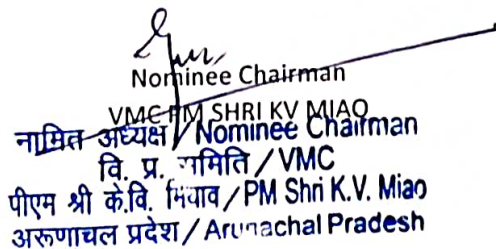 Nominee Chairman
VMC PM SHRI KV MIAO
नामित अध्यक्ष / Nominee Chairman
वि. प्र. समिति / VMC
पीएम श्री के.वि. मियाव / PM Shri K.V. Miao
अरूणाचल प्रदेश / Arunachal Pradesh